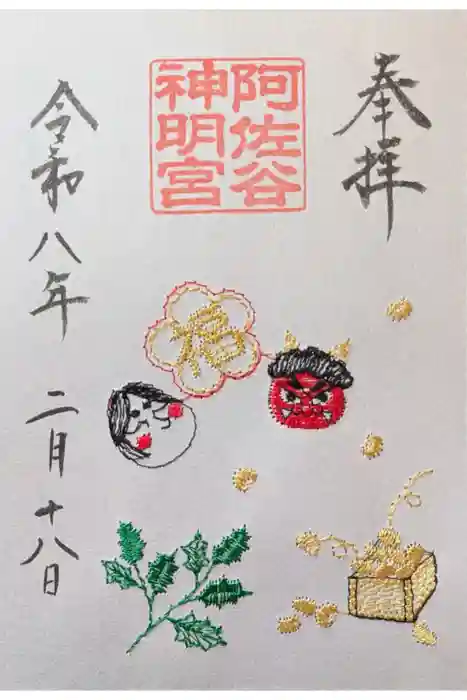 奉拝
阿佐谷
神明宮
福
令和八年 二月十八日